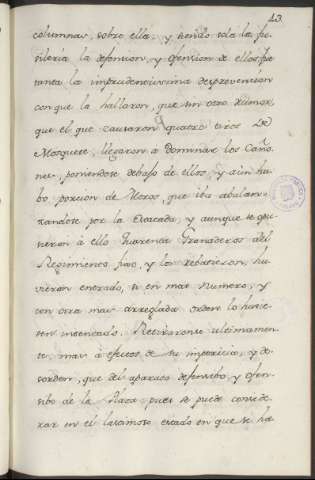 43.
columnas, sobre ella, y siendo sola la fu-
silería la defension, y ofension de ellos fue
tanta la imprudentissima desprevencion
con que la hallaron, que sin otro rumor,
que el que causaron quatro tiros de
Mosquete, llegaron a dominar los Caño-
nes, poniendose debaxo de ellos, y aun hu-
bo porcion de Moros, que iba abalan-
zandose por la Estacada, y aunque se opu-
sieron à ello quarenta Granaderos del
Regimiento fixo, y los rebatieron, hu-
vieran entrado, si en mas numero, y
con otra mas arreglada orden lo hubie-
sen intentado. Retiraronse ultimamen-
te, mas à efectos de su impericia, y de-
sorden, que del aparato defensibo, y ofen-
sibo de la Plaza pues se puede conside-
rar en el lastimoso estado en que se ha